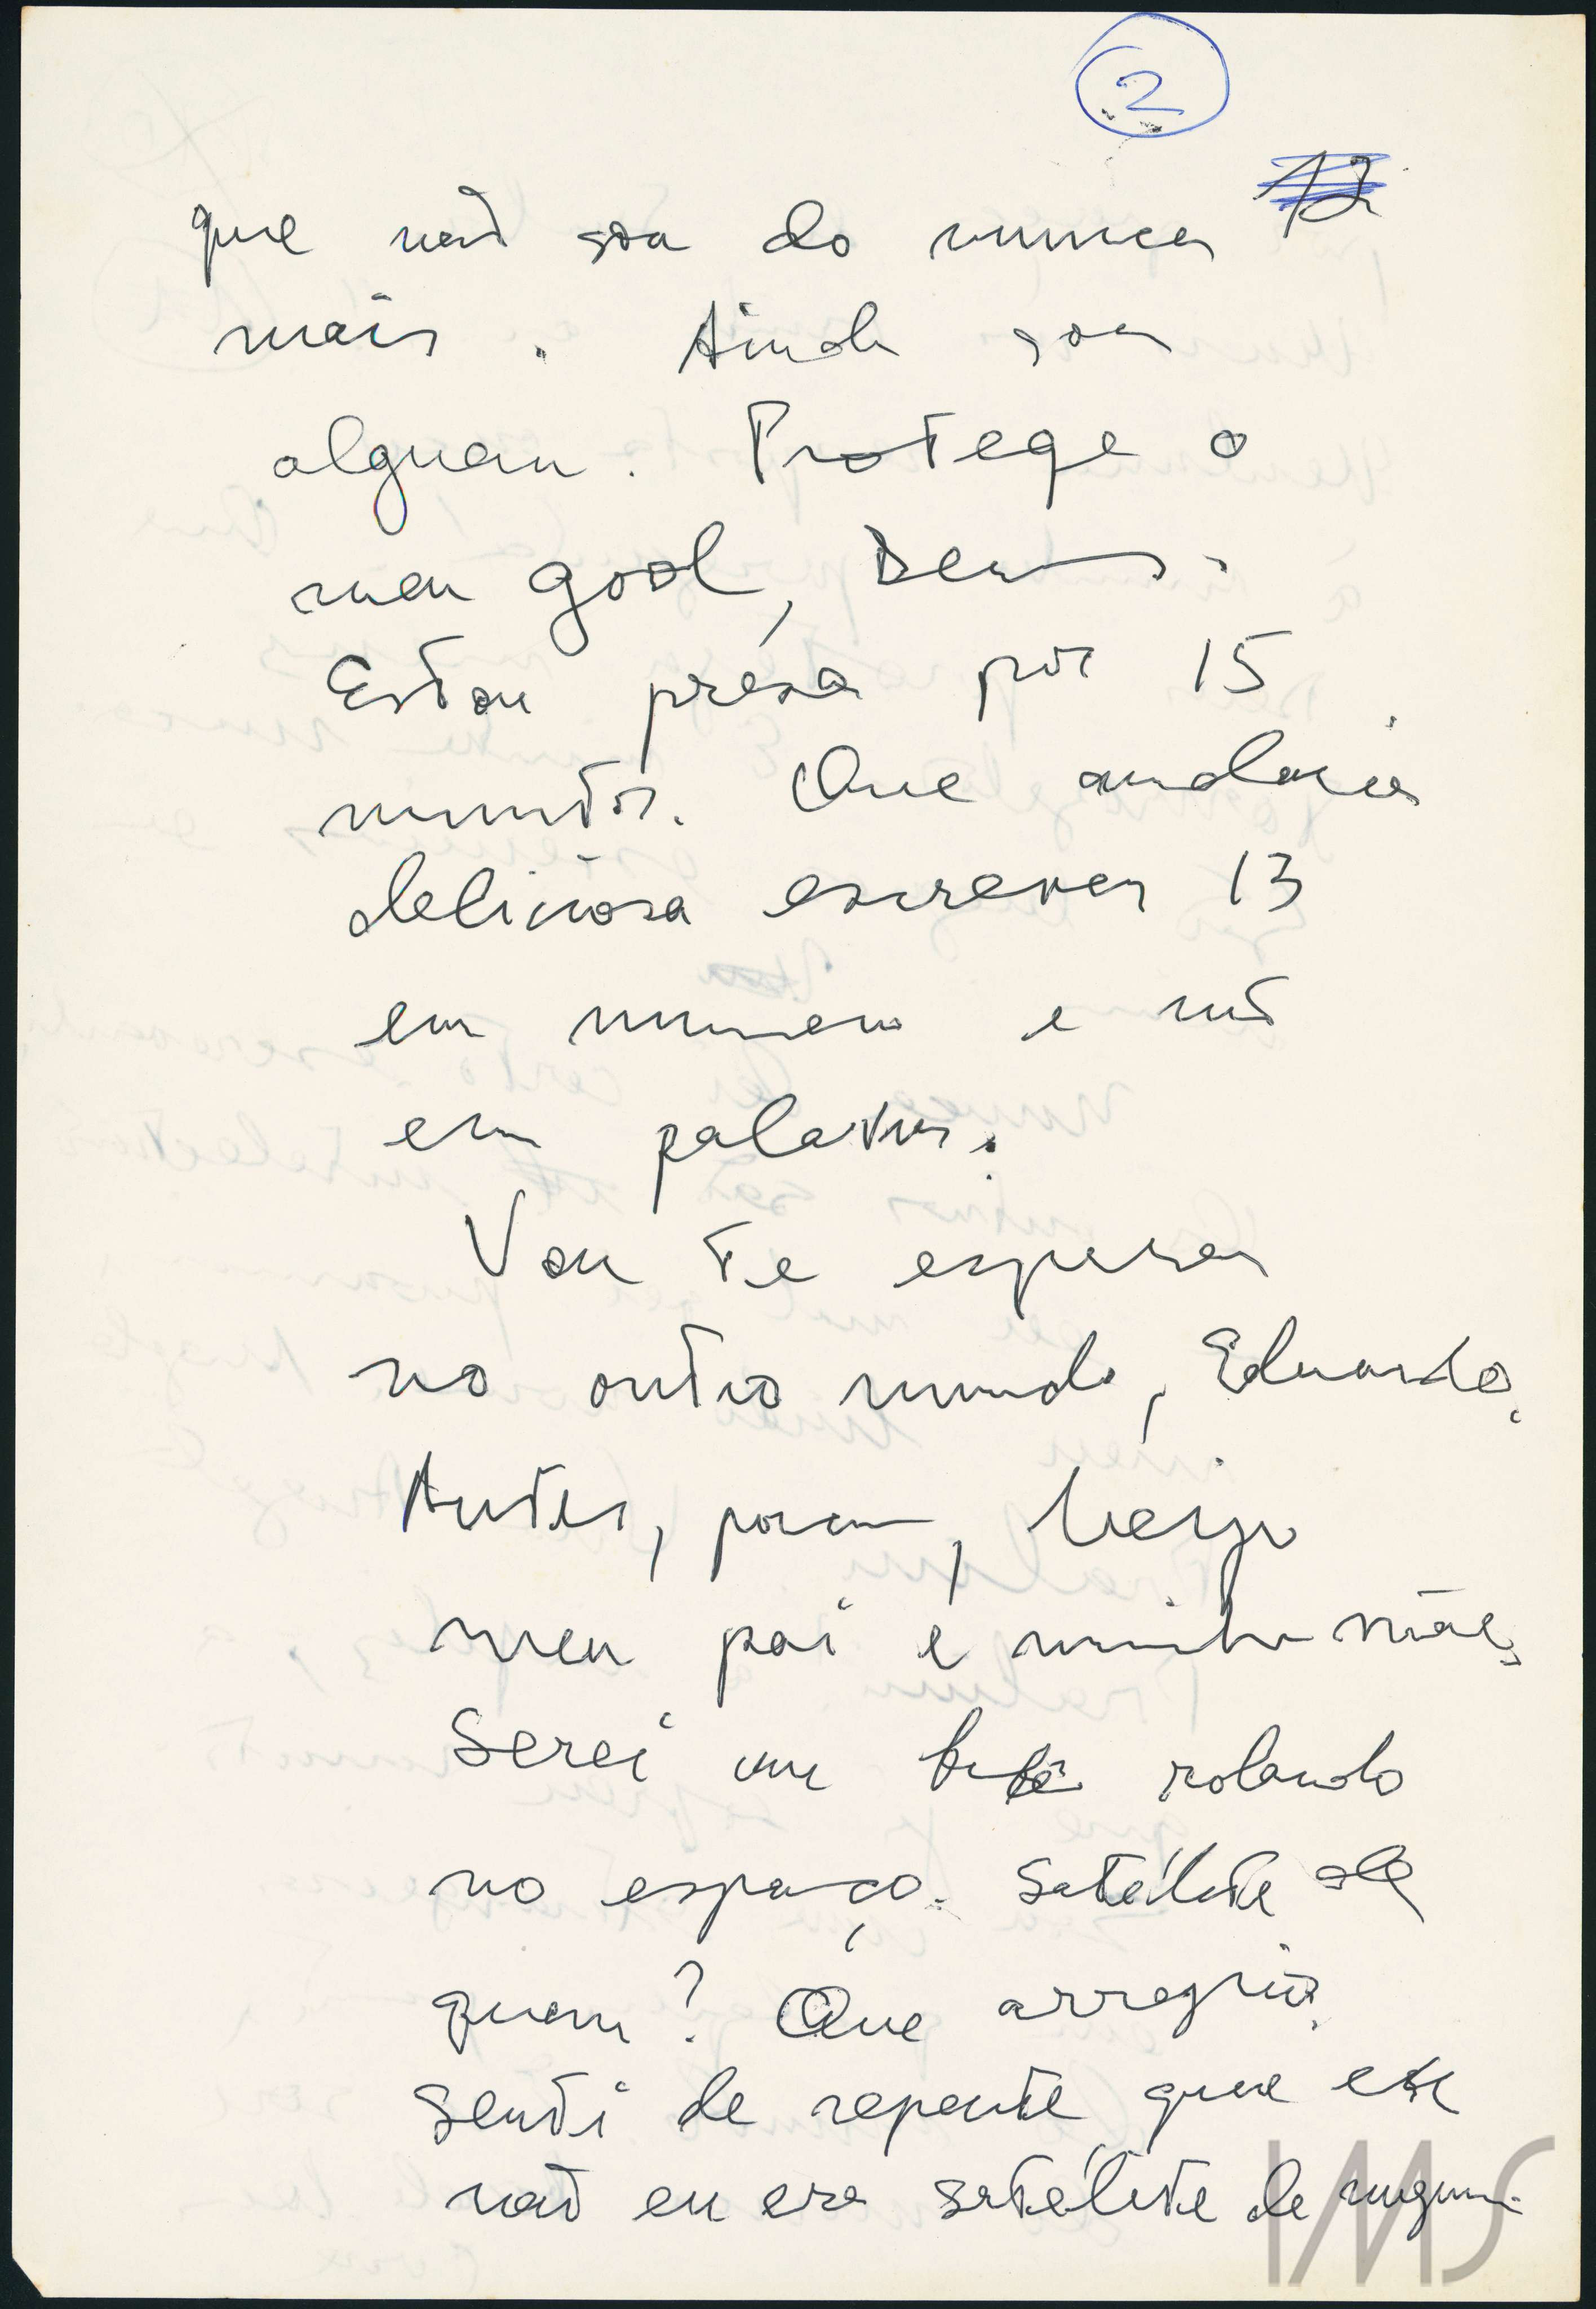 2
12
que não sou do nunca
mais. Ainda sou
alguem. Protege o
meu gool, Deus.
Estou presa por 15
minutos. Que audacia
deliciosa escrever 13
em numero e não
em palavras.
Vou te esperar
no outro mundo, Eduardo.
Antes, porem, beijo
meu pai e minha mãe,
Serei um bebê rolando
no espaço. Satélite de
quem? Que arrepio.
Senti de repente que
não eu era satélite de ninguem.
IMS